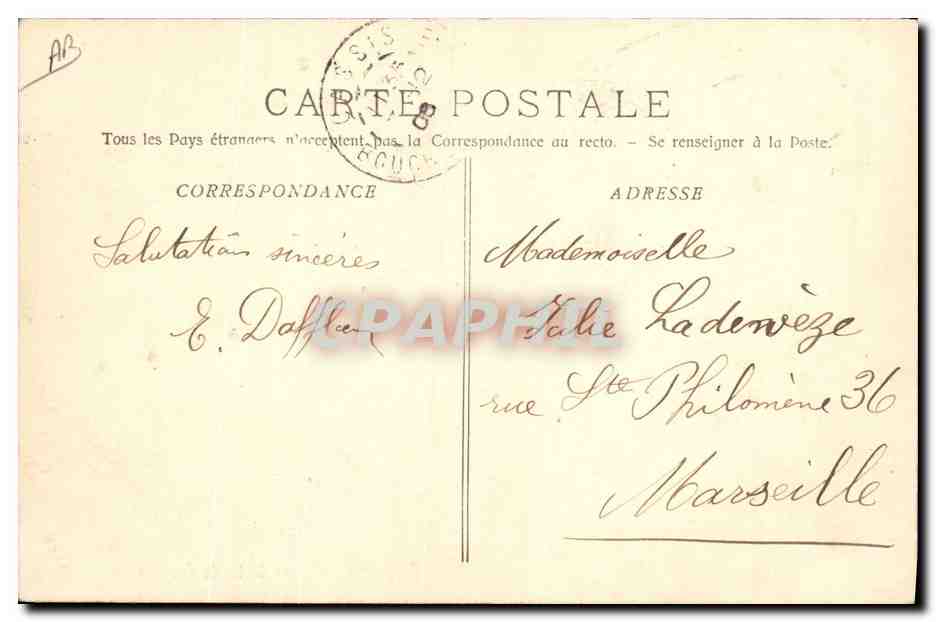 AB
CARTE POSTALE
Tous les Pays étrangers n'acceptent pas la Correspondance au recto. - Se renseigner à la Poste.
CORRESPONDANCE
Salutations sincères
E.
ADRESSE
Mademoiselle
Ladevèze
rue Ste Philomène 36
Marseille
CPAPHIL